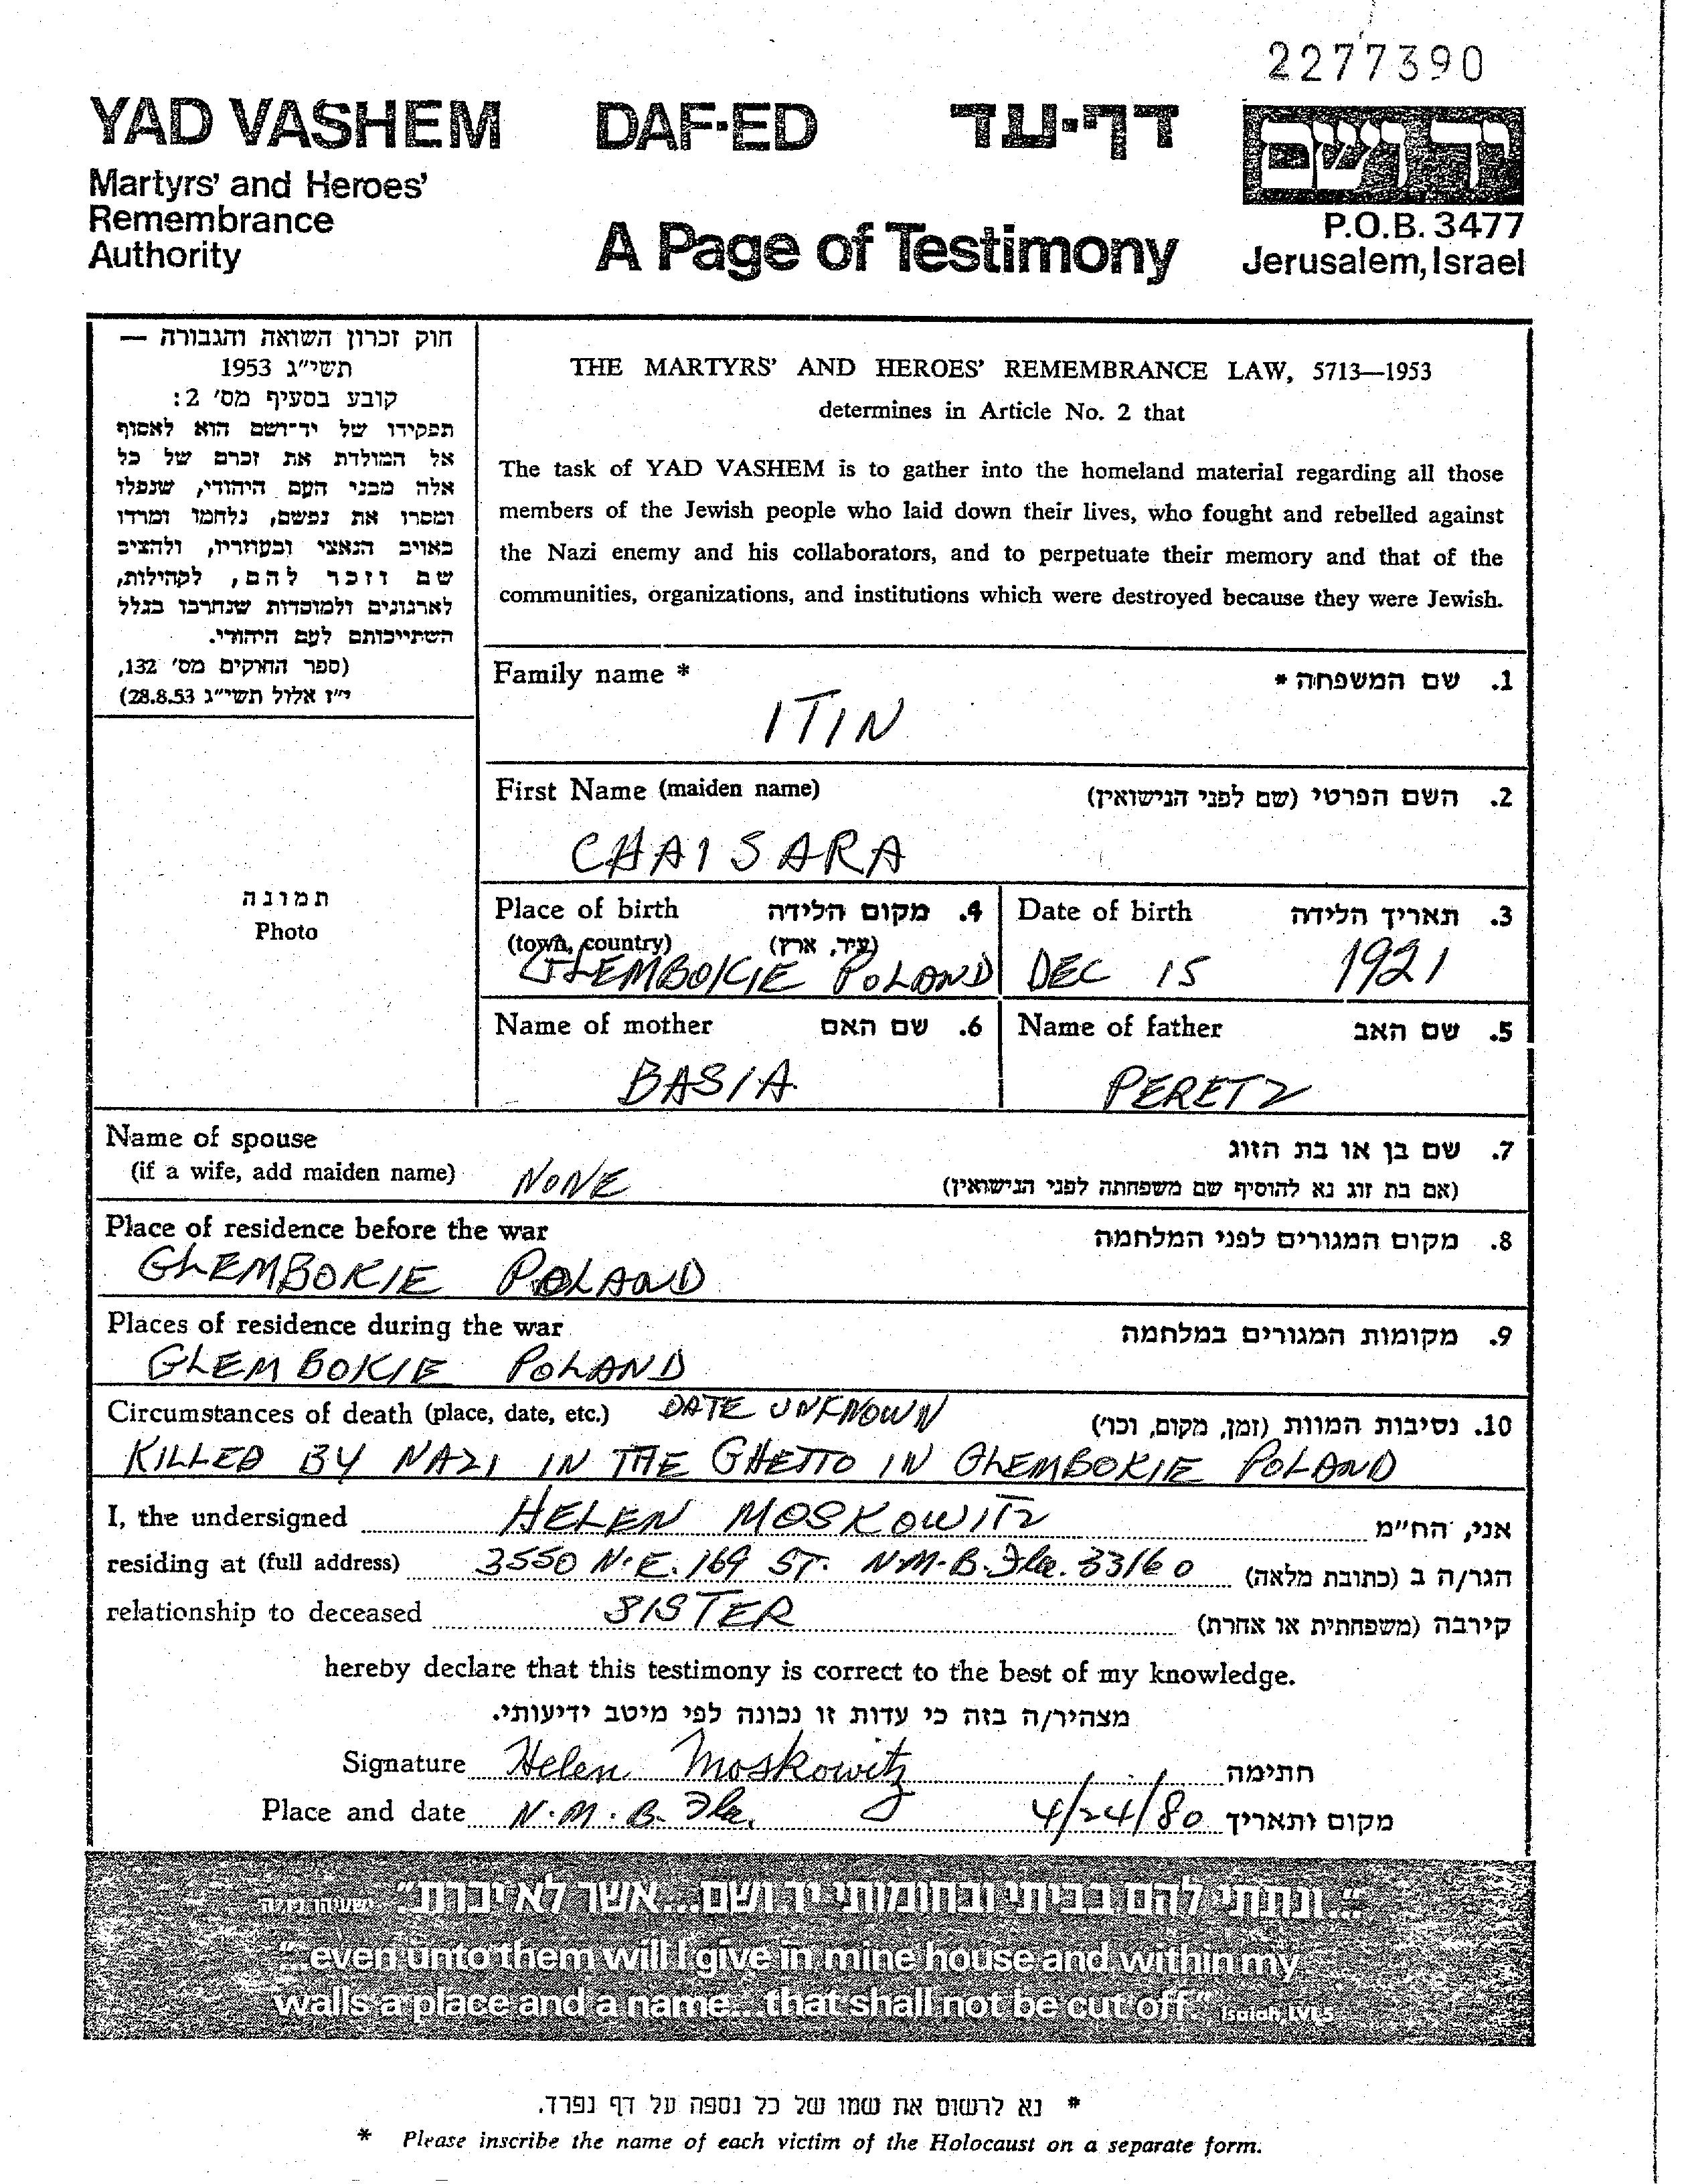 2277390
YAD VASHEM DAF-ED דף-עד יד ושם
Martyrs' and Heroes'
Remembrance
Authority
A Page of Testimony
P.O.B. 3477
Jerusalem, Israel
חוק זכרון השואה והגבורה —
תשי"ג 1953
קובע בסעיף מס' 2:
תפקידו של יד-ושם הוא לאסוף
אל המולדת את זכרם של כל
אלה מבני העם היהודי, שנפלו
ומסרו את נפשם, נלחמו ומרדו
באויב הנאצי ובעוזריו, ולהציב
שם וזכר להם, לקהילות,
לארגונים ולמוסדות שנחרבו בגלל
השתייכותם לעם היהודי.
(ספר החוקים מס' 132,
י"ז אלול תשי"ג 28.8.53)
תמונה
Photo
THE MARTYRS' AND HEROES' REMEMBRANCE LAW, 5713—1953
determines in Article No. 2 that
The task of YAD VASHEM is to gather into the homeland material regarding all those
members of the Jewish people who laid down their lives, who fought and rebelled against
the Nazi enemy and his collaborators, and to perpetuate their memory and that of the
communities, organizations, and institutions which were destroyed because they were Jewish.
Family name * 1. שם המשפחה *
ITIN
First Name (maiden name) 2. השם הפרטי (שם לפני הנישואין)
CHAI SARA
Place of birth 4. מקום הלידה
(town, country) (עיר, ארץ)
GLEMBOKIE POLAND
Date of birth 3. תאריך הלידה
DEC 15 1921
Name of mother 6. שם האם
BASIA
Name of father 5. שם האב
PERETZ
Name of spouse 7. שם בן או בת הזוג
(if a wife, add maiden name) NONE (אם בת זוג נא להוסיף שם משפחתה לפני הנישואין)
Place of residence before the war 8. מקום המגורים לפני המלחמה
GLEMBOKIE POLAND
Places of residence during the war 9. מקומות המגורים במלחמה
GLEMBOKIE POLAND
Circumstances of death (place, date, etc.) DATE UNKNOWN 10. נסיבות המוות (זמן, מקום, וכו')
KILLED BY NAZI IN THE GHETTO IN GLEMBOKIE POLAND
I, the undersigned HELEN MOSKOWITZ אני, הח"מ
residing at (full address) 3550 N.E. 169 ST. N.M.B. Fla. 33160 הגר/ה ב (כתובת מלאה)
relationship to deceased SISTER קירבה (משפחתית או אחרת)
hereby declare that this testimony is correct to the best of my knowledge.
מצהיר/ה בזה כי עדות זו נכונה לפי מיטב ידיעותי.
Signature Helen Moskowitz חתימה
Place and date N.M.B. Fla. 4/24/80 מקום ותאריך
"...ונתתי להם בביתי ובחומותי יד ושם...אשר לא יכרת"
"...even unto them will I give in mine house and within my
walls a place and a name...that shall not be cut off." Isaiah, LVI,5
* נא לרשום את שמו של כל נספה על דף נפרד.
* Please inscribe the name of each victim of the Holocaust on a separate form.